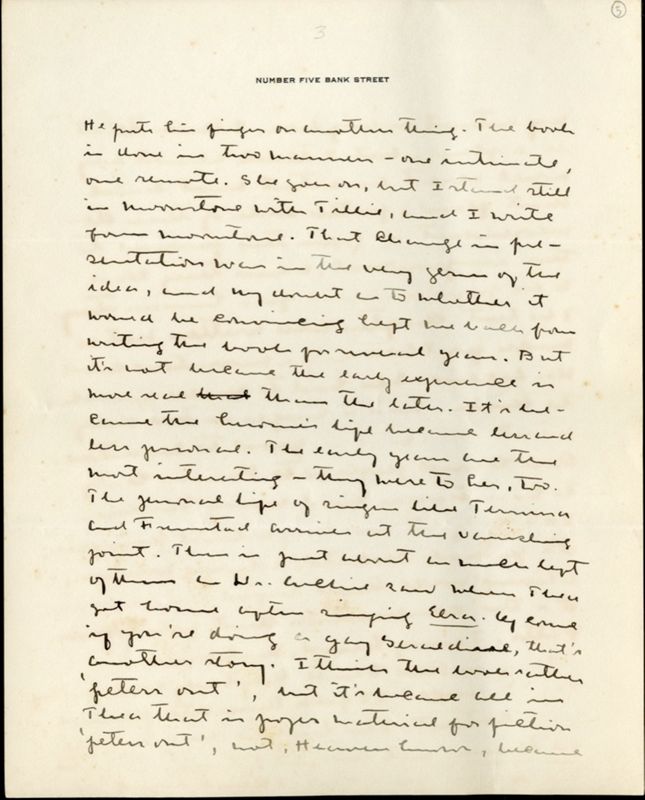 5
3
NUMBER FIVE BANK STREET
He puts his finger on another thing. The book
is done in two manners - one intimate,
one remote. She goes on, but I stand still
in Moonstone with Tillie, and I write
from Moonstone. That change in pre-
sentation was in the very germ of the
idea, and my doubt as to whether it
would be convincing kept me back from
writing the book for several years. But
it's not because the early experience is
more real than the later. It's be-
cause the heroine's life became less and
less personal. The early years are the
most interesting - they were to her, too.
The personal life of singers like Ternina
and Fremstad arrives at the vanishing
point. There is just about as much left
of them as Dr. Archie saw when Thea
got home after singing Elsa. Of course
if you're doing a gay Geraldine, that's
another story. I think the book rather
'peters out', but it's because all in
Thea that is proper material for fiction
'peters out', not, Heaven knows, because